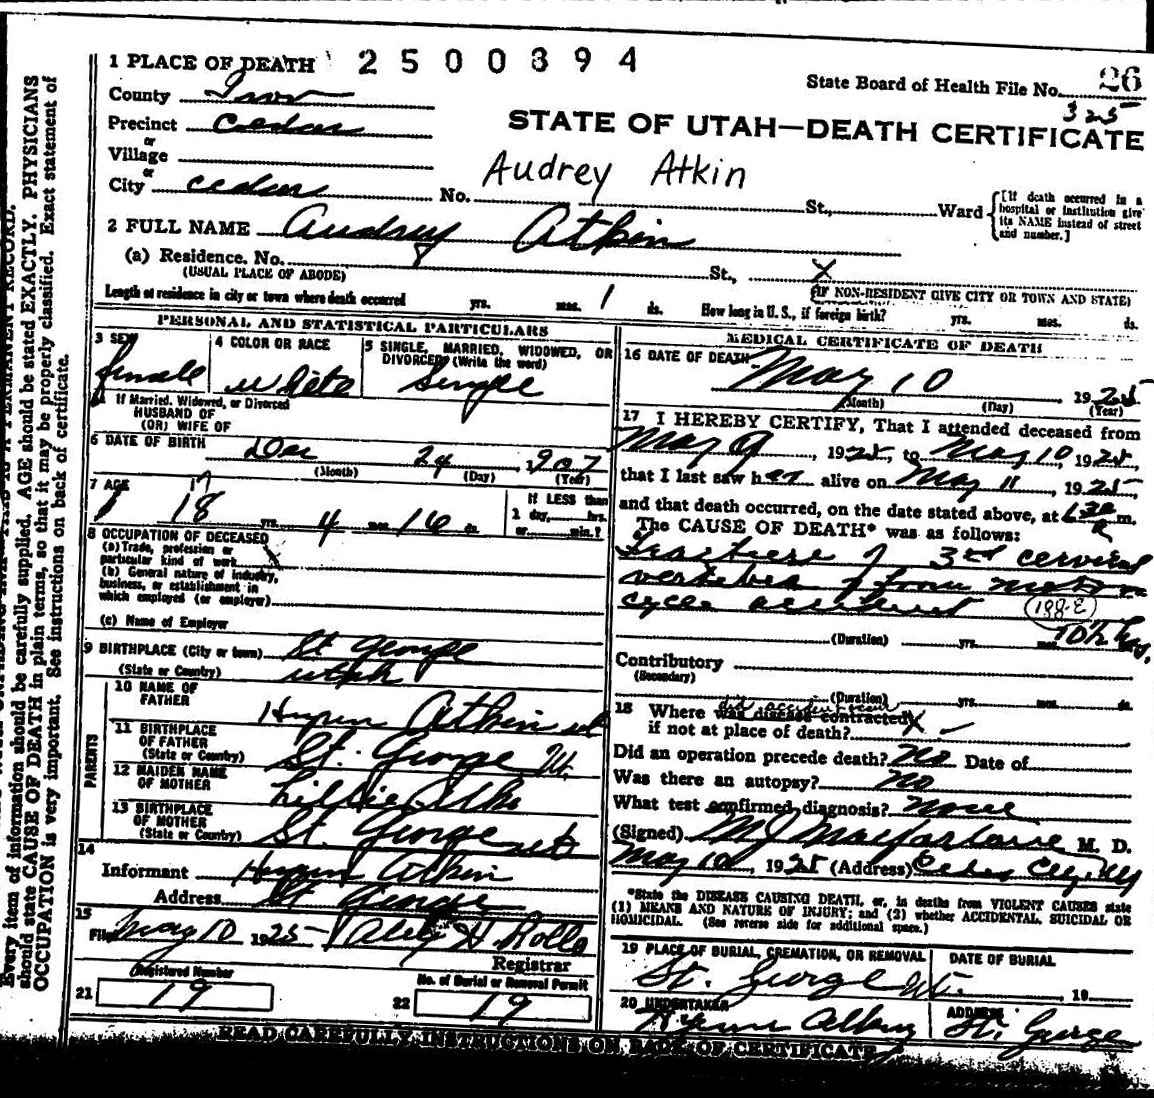 1 PLACE OF DEATH 2500394
State Board of Health File No. 26
325
County Iron
Precinct Cedar
STATE OF UTAH—DEATH CERTIFICATE
or
Village
or
Audrey Atkin
City cedar No. St., Ward
[If death occurred in a hospital or institution give its NAME instead of street and number.]
2 FULL NAME Audrey Atkin
(a) Residence. No. St., X
(USUAL PLACE OF ABODE) (IF NON-RESIDENT GIVE CITY OR TOWN AND STATE)
Length of residence in city or town where death occurred yrs. mos. 1 ds. How long in U. S., if foreign birth? yrs. mos. ds.
PERSONAL AND STATISTICAL PARTICULARS
3 SEX
female
4 COLOR OR RACE
White
5 SINGLE, MARRIED, WIDOWED, OR DIVORCED (Write the word)
Single
If Married, Widowed, or Divorced
HUSBAND OF
(OR) WIFE OF
6 DATE OF BIRTH Dec 24, 1907
(Month) (Day) (Year)
7 AGE 17
18 yrs. 4 mos. 16 ds.
If LESS than
1 day, hrs.
or min.?
8 OCCUPATION OF DECEASED
(a) Trade, profession or
particular kind of work X
(b) General nature of industry,
business, or establishment in
which employed (or employer)
(c) Name of Employer
9 BIRTHPLACE (City or town) St George
(State or Country) utah
PARENTS
10 NAME OF
FATHER Hyrum Atkin
11 BIRTHPLACE
OF FATHER
(State or Country) St. George Ut.
12 MAIDEN NAME
OF MOTHER Lillie
13 BIRTHPLACE
OF MOTHER
(State or Country) St. George
14
Informant Hyrum Atkin
Address St George
15
File May 10 1925 H. Rollo
Registrar
Registered Number
21 19
No. of Burial or Removal Permit
22 19
MEDICAL CERTIFICATE OF DEATH
16 DATE OF DEATH May 10 1925
(Month) (Day) (Year)
17 I HEREBY CERTIFY, That I attended deceased from
May 9, 1925, to May 10, 1925,
that I last saw her alive on May 11, 1925,
and that death occurred, on the date stated above, at 1.30 m.
The CAUSE OF DEATH* was as follows:
Fracture of 3rd cervical
vertebra from motor
cycle accident 188-E
(Duration) yrs. mos. 10½ hrs.
Contributory
(Secondary)
(Duration) yrs. mos. ds.
did accident occur
18 Where was disease contracted X
if not at place of death?
Did an operation precede death? No Date of
Was there an autopsy? no
What test confirmed diagnosis? none
(Signed) M J Macfarlane M. D.
May 10, 1925 (Address) Cedar City, Ut
*State the DISEASE CAUSING DEATH, or, in deaths from VIOLENT CAUSES state
(1) MEANS AND NATURE OF INJURY; and (2) whether ACCIDENTAL, SUICIDAL OR
HOMICIDAL. (See reverse side for additional space.)
19 PLACE OF BURIAL, CREMATION, OR REMOVAL
St. George Ut.
DATE OF BURIAL
, 19
20 UNDERTAKER
Hyrum Atkin
ADDRESS
St. George
READ CAREFULLY INSTRUCTIONS ON BACK OF CERTIFICATE
Every item of information should be carefully supplied. AGE should be stated EXACTLY. PHYSICIANS
should state CAUSE OF DEATH in plain terms, so that it may be properly classified. Exact statement of
OCCUPATION is very important. See instructions on back of certificate.